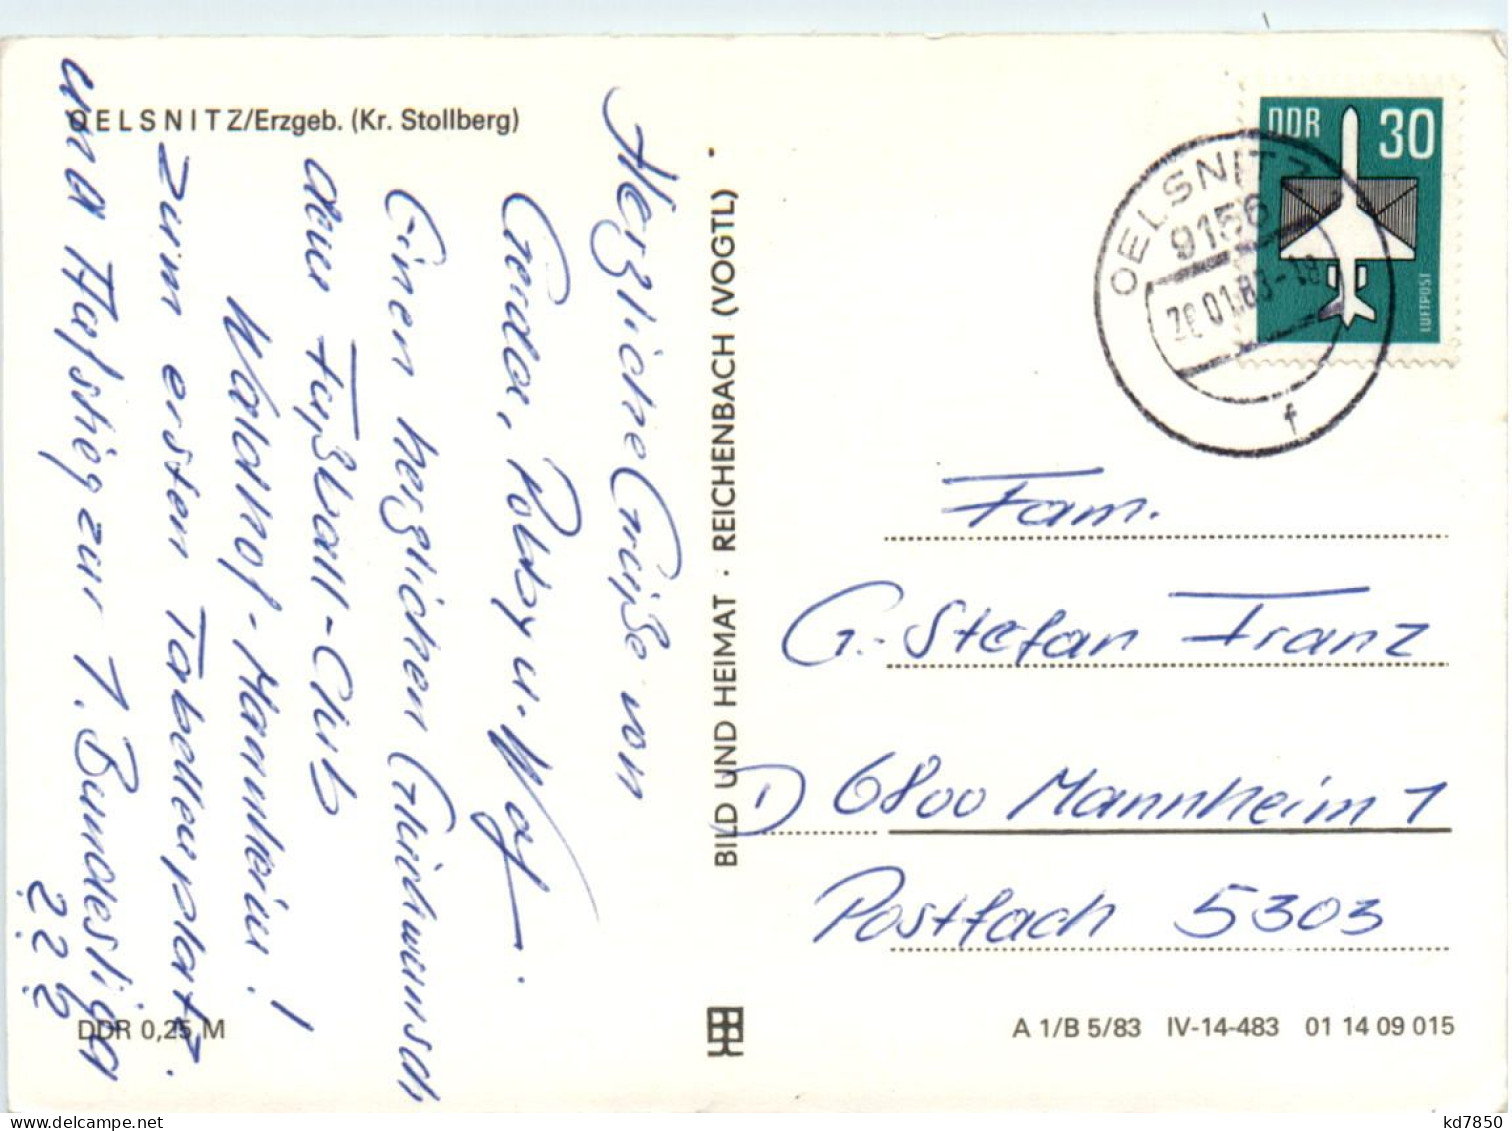 OELSNITZ/Erzgeb. (Kr. Stollberg)
Herzliche Grüße von
Gerda, Bobby u.
Einen herzlichen Glückwunsch
dem Fußball-Club
Waldhof-Mannheim!
zum ersten Tabellenplatz.
und Aufstieg zur 1. Bundesliga
???
BILD UND HEIMAT · REICHENBACH (VOGTL)
DDR 30
LUFTPOST
OELSNITZ
9156
.01.83-18
f
Fam.
G. Stefan Franz
D 6800 Mannheim 1
Postfach 5303
DDR 0,25 M
A 1/B 5/83 IV-14-483 01 14 09 015
kd7850